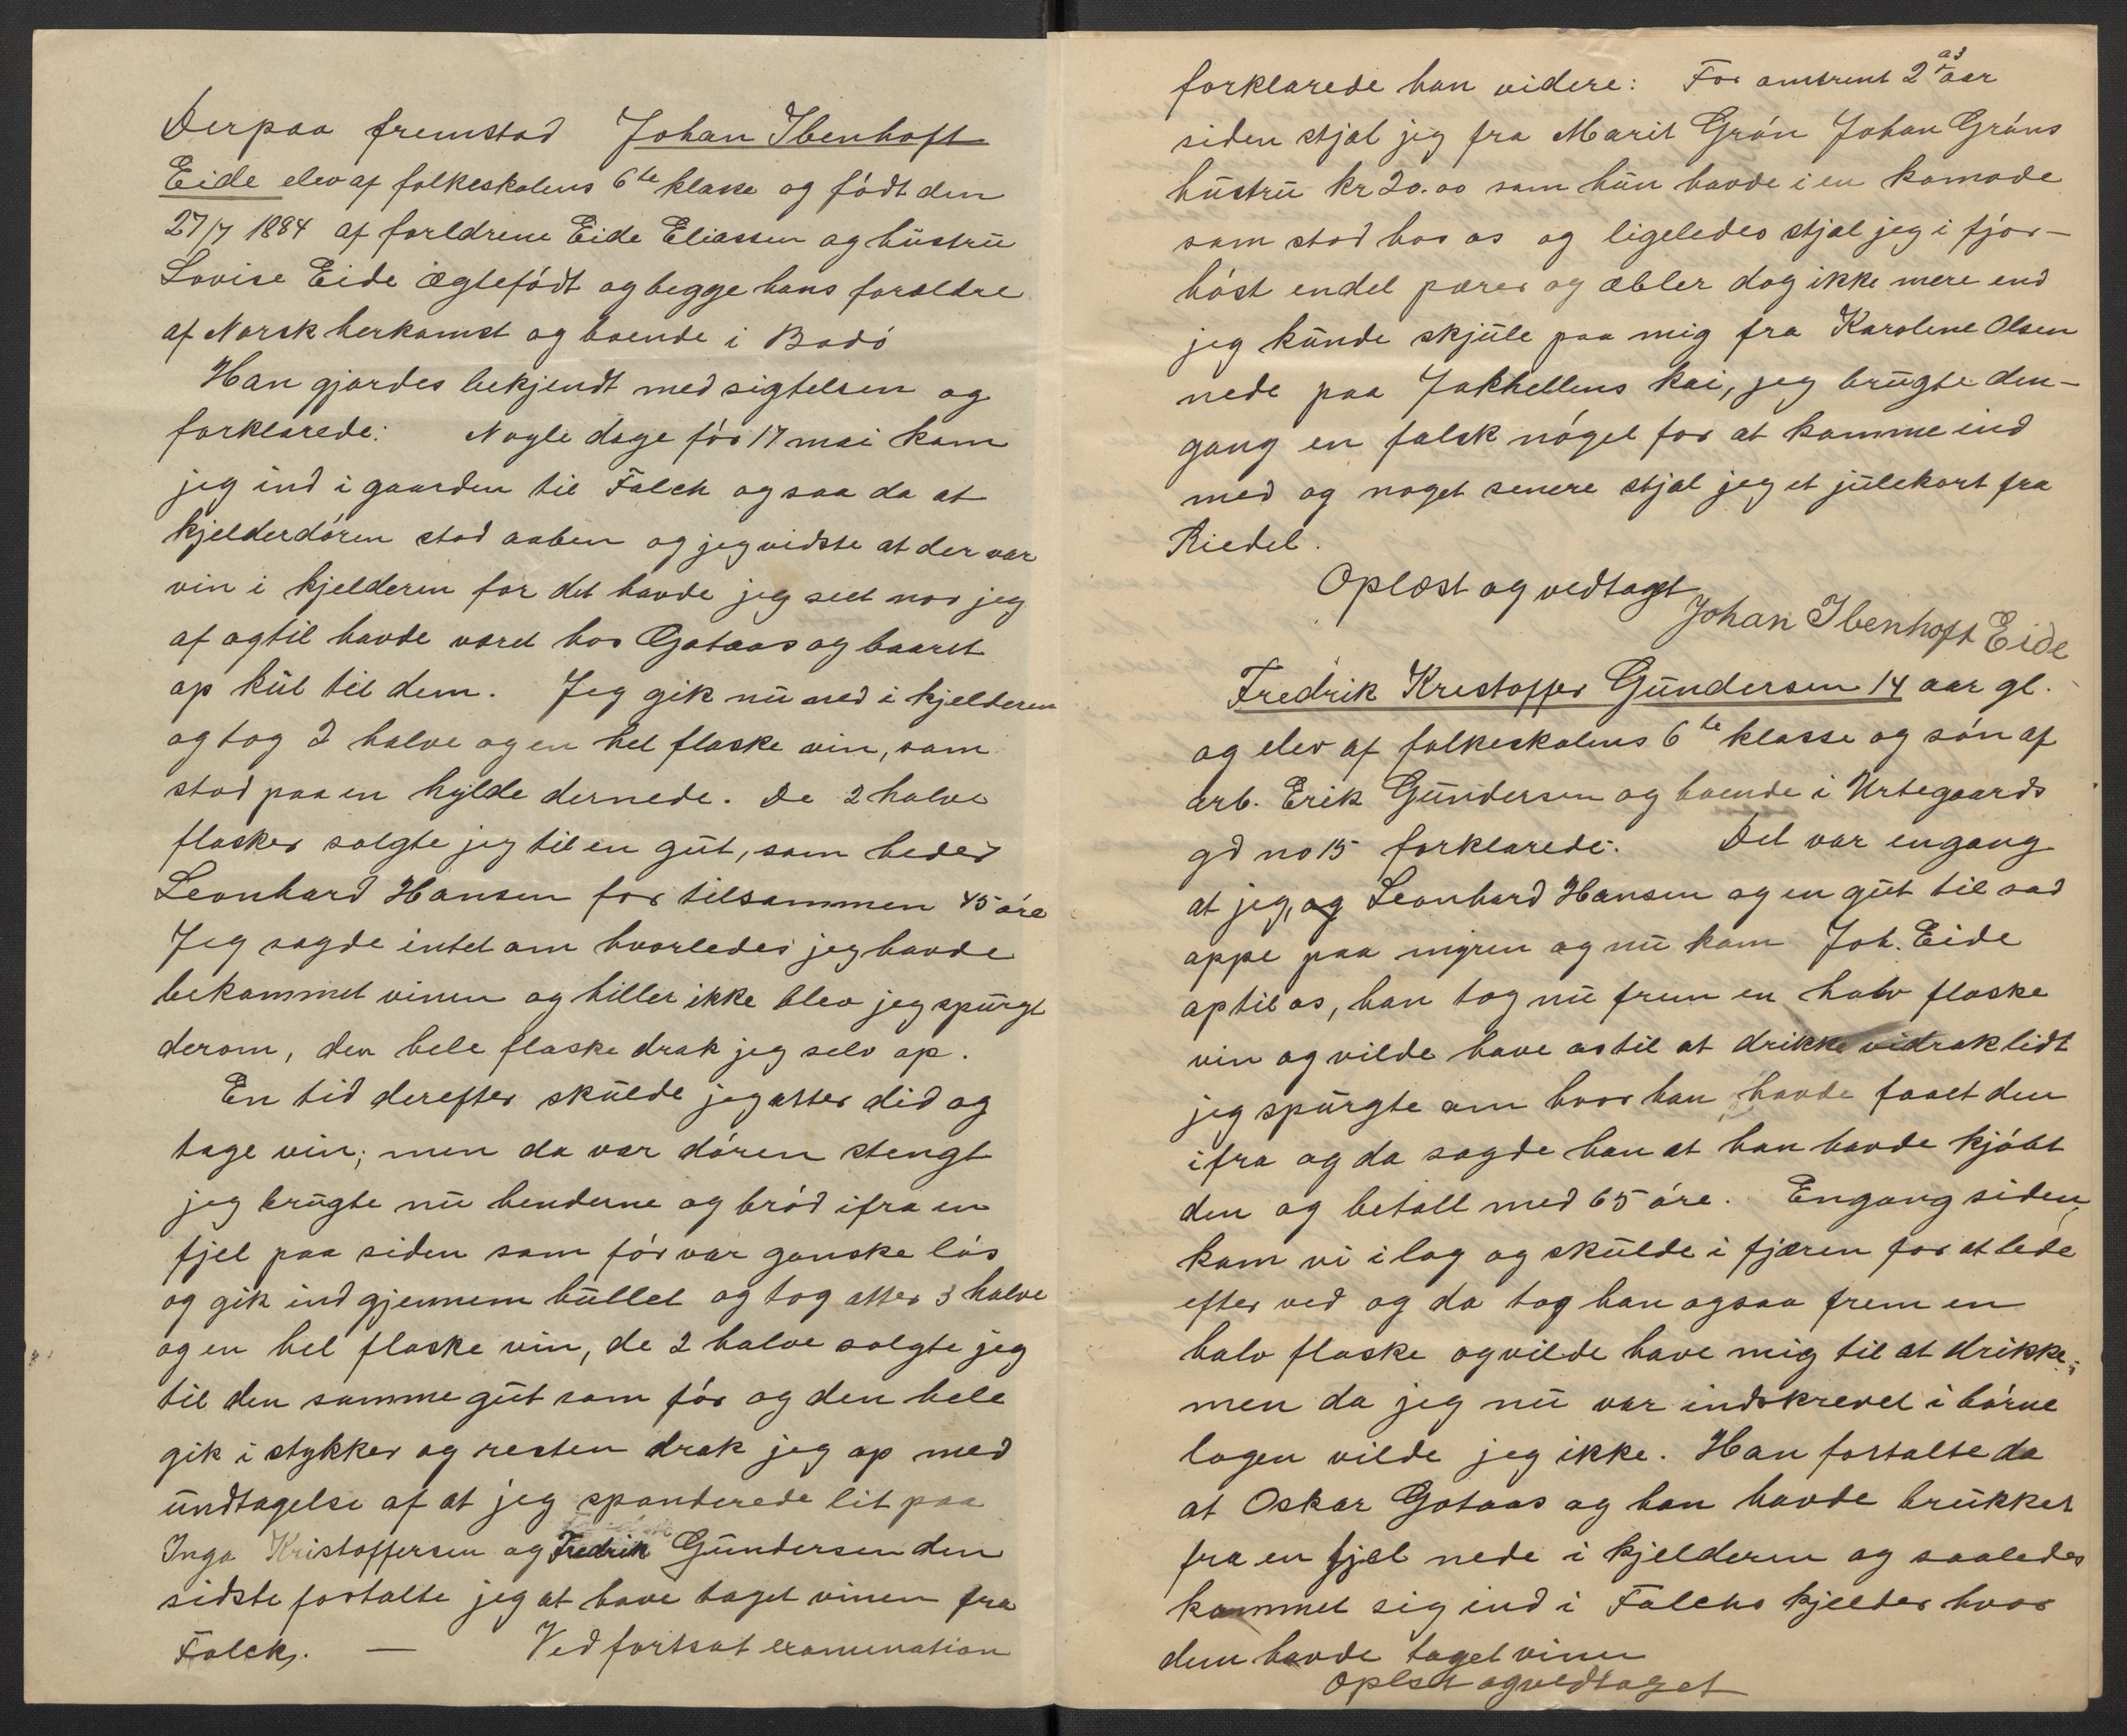 Derpaa fremstod Johan Ibenhoft
Eide elev af folkeskolens 6te klasse og født den
27/7 1884 af forldrene Eide Eliassen og hustru
Lovise Eide ægtefødt og begge hans forældre
af Norsk herkomst og boende i Bodø
Han gjordes bekjendt med sigtelsen og
forklarede: Nogle dage før 17 mai kom
jeg ind i gaarden til Falch og saa da at
kjelderdøren stod aaben og jeg vidste at der var
vin i kjelderen for det havde jeg seet nor jeg
af og til havde været hos Gotaas og baaret
op kul til dem. Jeg gik nu ned i kjelderen
og tog 2 halve og en hel flaske vin, som
stod paa en hylde dernede. De 2 halve
flasker solgte jeg til en gut, som heder
Leonhard Hansen for tilsammen 45 øre
Jeg sagde intet om hvorledes jeg havde
bekommet vinen og hiller ikke blev jeg spurgt
derom, den hele flaske drak jeg selv op.
En tid derefter skulde jeg atter did og
tage vin; men da var døren stengt
jeg brugte nu henderne og brød ifra en
fjel paa siden som før var ganske løs
og gik ind gjennem hullet og tog atter 3 halve
og en hel flaske vin, de 2 halve solgte jeg
til den samme gut som før og den hele
gik i stykker og resten drak jeg op med
undtagelse af at jeg spanderede lit paa
Inga Kristoffersen og Fredrik Gundersen den
sidste fortalte jeg at have taget vinen fra
Falck. — Ved fortsat examination
forklarede han videre: For omtrent 2 a3 aar
siden stjal jeg fra Marit Grøn Johan Grøns
hustru kr 20.00 som hun havde i en komode
som stod hos os og ligeledes stjal jeg i fjor-
høst endel pærer og æbler dog ikke mere end
jeg kunde skjule paa mig fra Karoline Olsen
nede paa Jakhellens kai, jeg brugte den-
gang en falsk nøgel for at komme ind
med og noget senere stjal jeg et julekort fra
Riedel.
Oplæst og vedtaget
Johan Ibenhoft Eide
Fredrik Krestoffer Gundersen 14 aar gl.
og elev af folkeskolens 6te klasse og søn af
arb. Erik Gundersen og boende i Urtegaards
gd no 15 forklarede: Det var engang
at jeg, og Leonhard Hansen og en gut til sad
oppe paa myren og nu kom Joh. Eide
op til os, han tog nu frem en halv flaske
vin og vilde have os til at drikke vi drak lidt
jeg spurgte om hvor han havde faaet den
ifra og da sagde han at han havde kjøbt
den og betalt med 65 øre. Engang siden
kom vi i lag og skulde i fjæren for at lede
efter ved og da tog han ogsaa frem en
halv flaske og vilde have mig til at drikke;
men da jeg nu var indskrevet i børne
logen vilde jeg ikke. Han fortalte da
at Oskar Gotaas og han havde brukket
fra en fjel nede i kjelderen og saaledes
kommet sig ind i Falchs kjelder hvor
dem havde taget vinen
Oplest og vedtaget